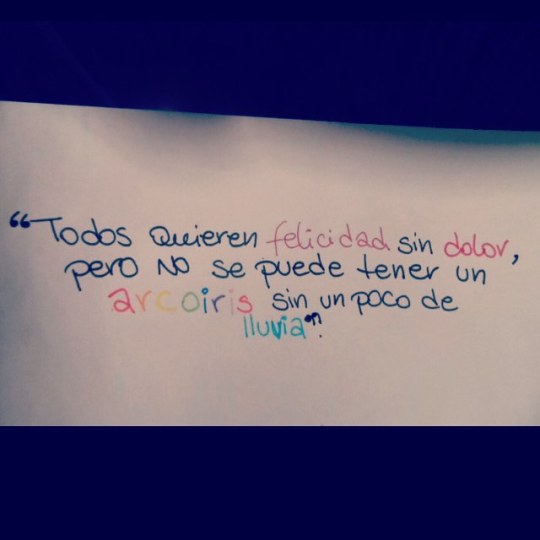 “Todos quieren felicidad sin dolor,
pero NO se puede tener un
arcoiris sin un poco de
lluvia”.